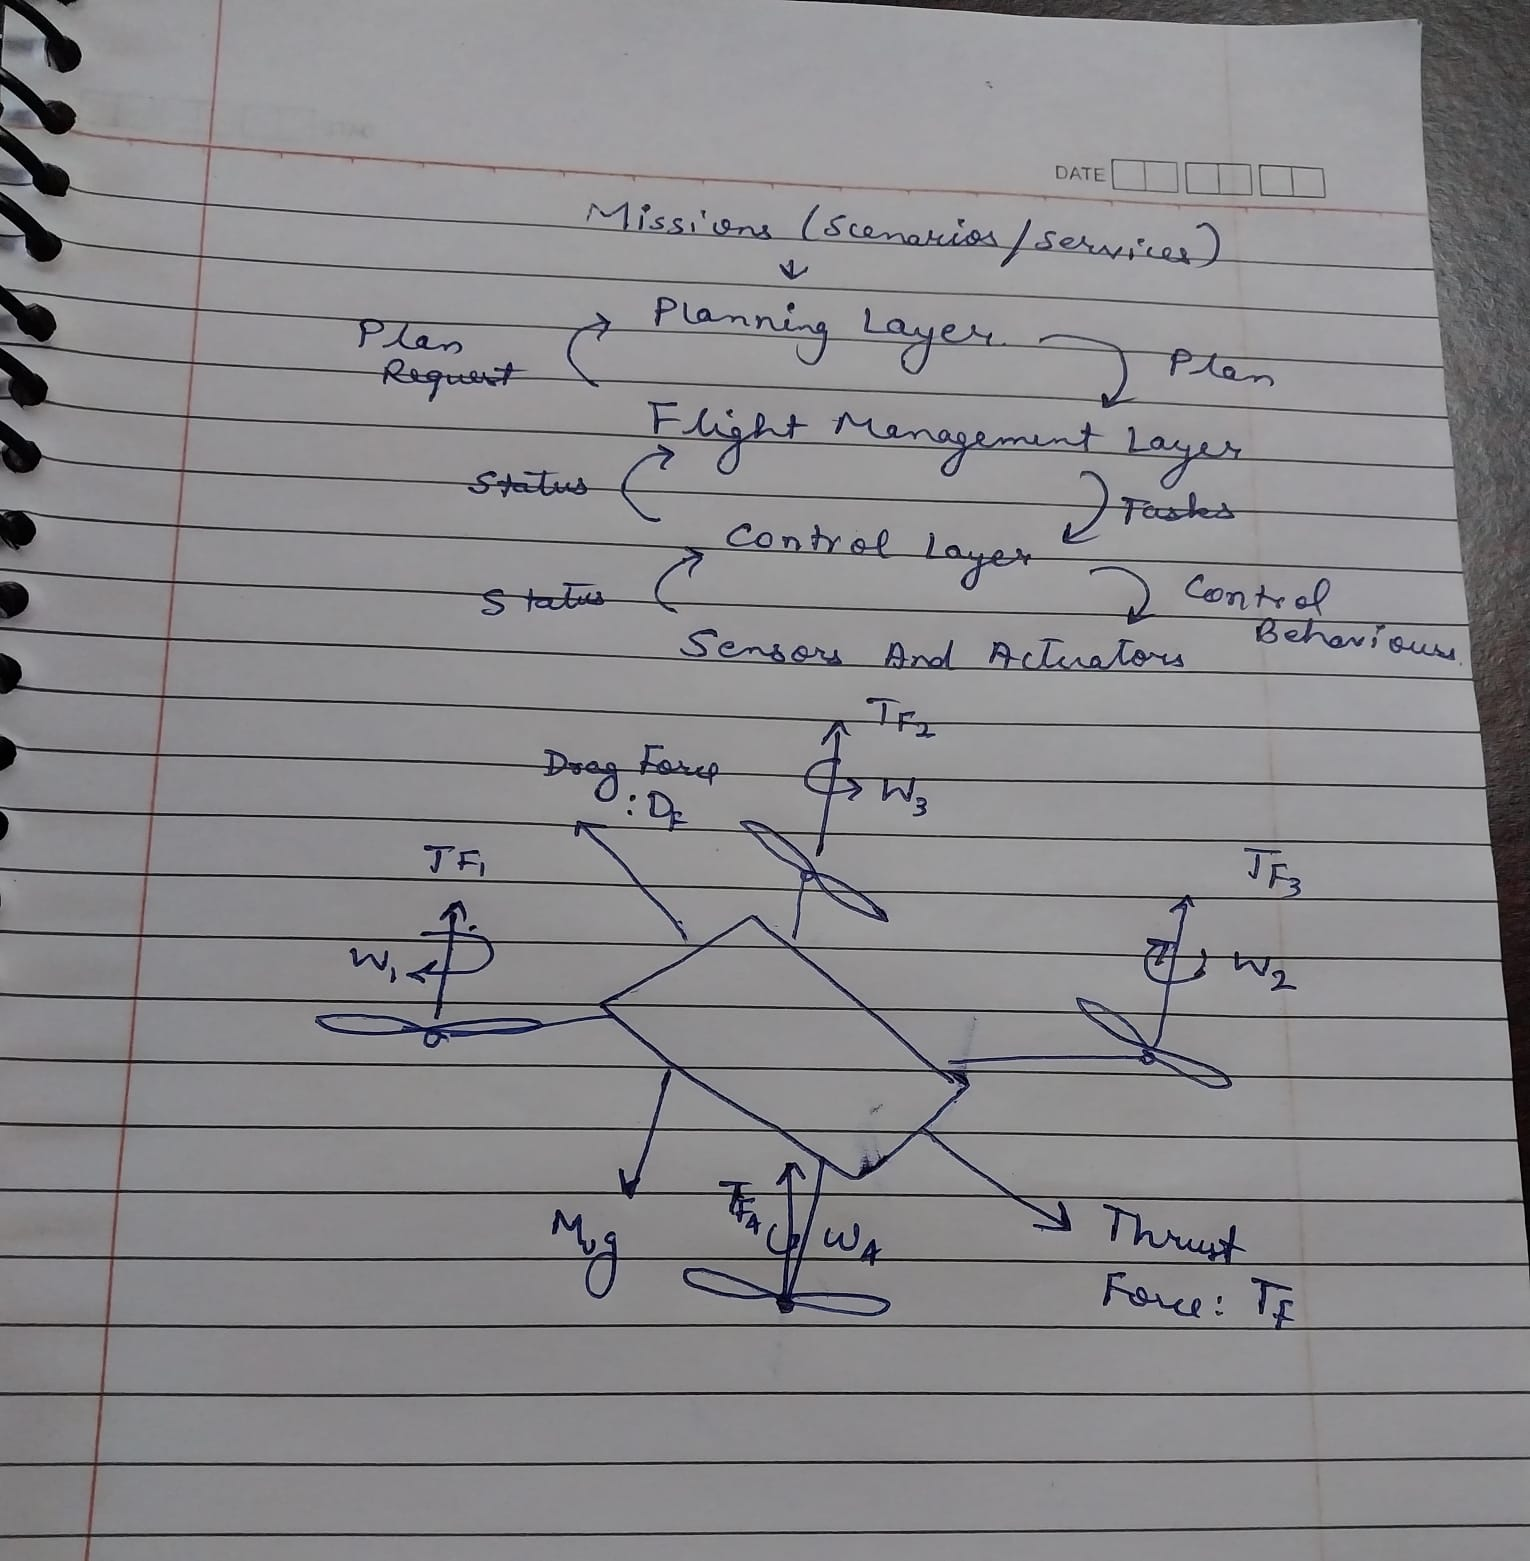 DATE
Missions (Scenarios/services)
Planning Layer
Plan
Request
Plan
Flight Management Layer
Status
Tasks
Control Layer
Status
Control
Behaviours
Sensors And Actuators
TF2
Drag Force
: DF
W3
TF1
TF3
W1
W2
TF4
W4
Mg
Thrust
Force: TF